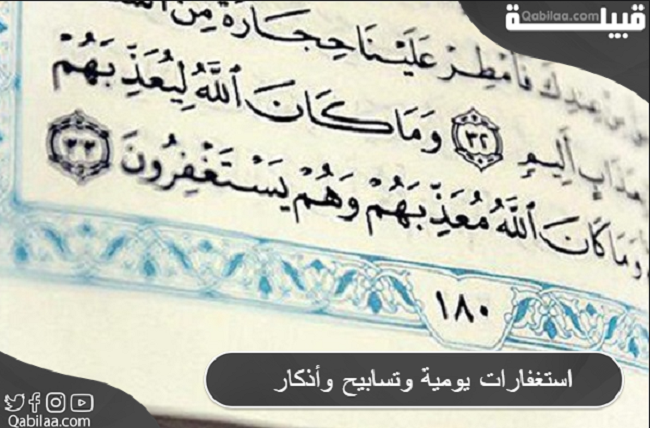 قبيلة
Qabilaa.com
عِندِكَ فَأَمْطِرْ عَلَيْنَا حِجَارَةً مِّنَ
عَذَابٍ أَلِيمٍ ٣٢ وَمَا كَانَ ٱللَّهُ لِيُعَذِّبَهُمْ
وَمَا كَانَ ٱللَّهُ مُعَذِّبَهُمْ وَهُمْ يَسْتَغْفِرُونَ ٣٣
١٨٠
استغفارات يومية وتسابيح وأذكار
Qabilaa.com